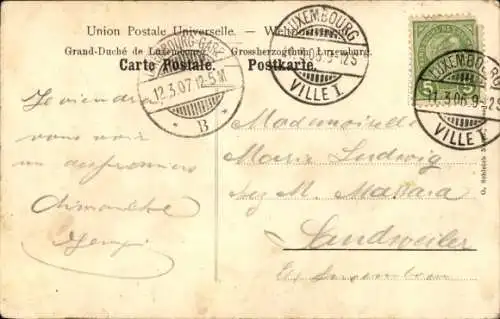 Union Postale Universelle. — Weltpostverein
Grand-Duché de Luxembourg. Grossherzogthum Luxemburg.
Carte Postale. Postkarte.
LUXEMBOURG-GARE
12.3.07 12-5M
B
LUXEMBOURG
06.9-12S
VILLE I.
5 5
LUXEMBOURG
.3.06.9-12S
VILLE I.
Je viendrai
vous voir
un des premiers
dimanches
Mademoiselle
Maria Ludwig
M. Massara
Sandweiler